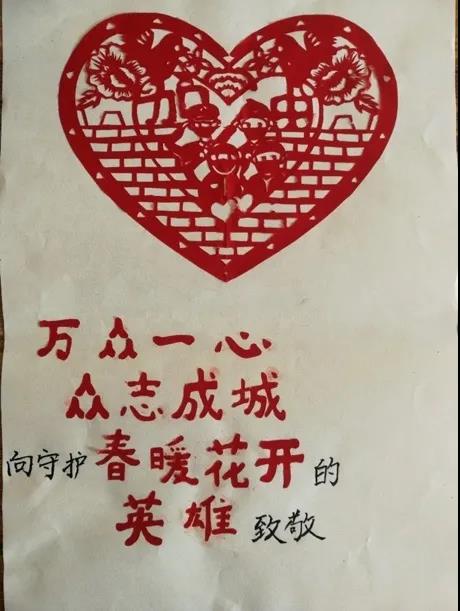 万众一心
众志成城
向守护春暖花开的
英雄致敬